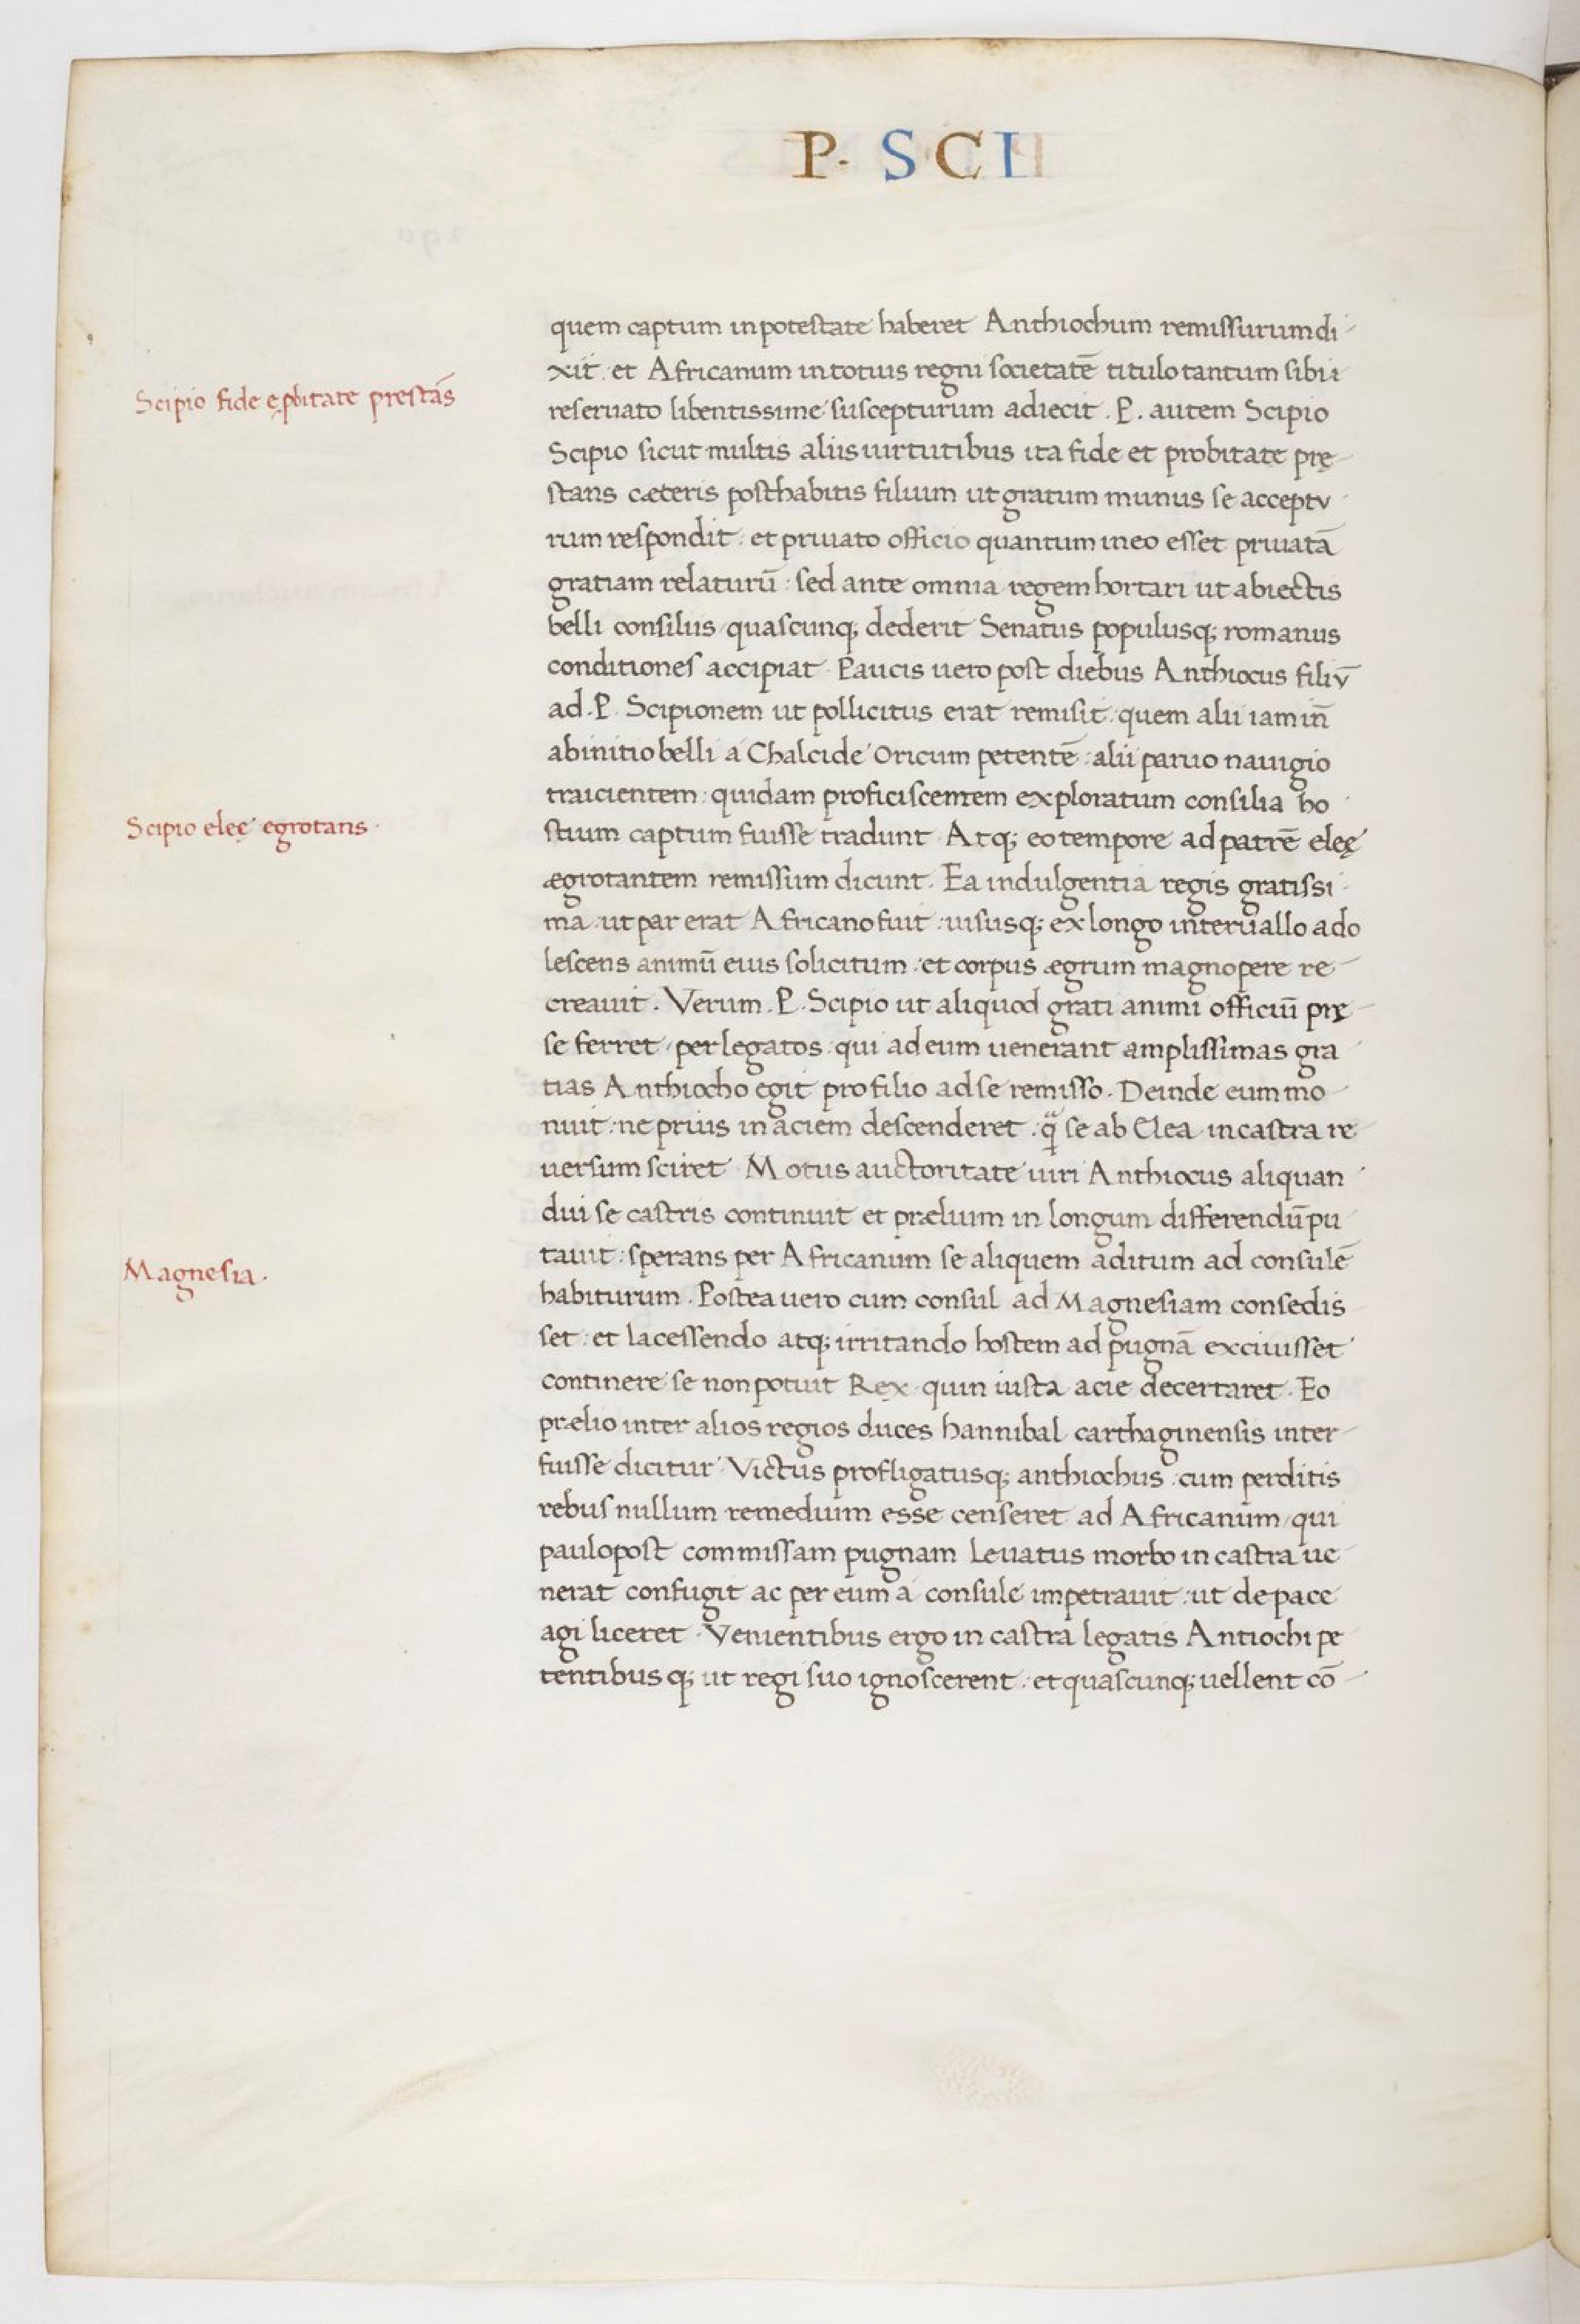 P. SCI
quem captum in potestate haberet Anthiochum remissurum di-
xit: et Africanum in totius regni societatē titulo tantum sibi i
reseruato libentissime suscepturum adiecit. P. autem Scipio
Scipio fide e pbitate prestās
Scipio sicut multis aliis uirtutibus ita fide et probitate prę-
stans cæteris posthabitis filium ut gratum munus se acceptu-
rum respondit: et priuato officio quantum in eo esset priuatā
gratiam relaturū: sed ante omnia regem hortari ut abiectis
belli consiliis quascunq; dederit Senatus populusq; romanus
conditiones accipiat. Paucis uero post diebus Anthiocus filiū
ad. P. Scipionem ut pollicitus erat remisit: quem alii iam in̄
ab initio belli a Chalcide Oricum petentē: alii paruo nauigio
traicientem: quidam proficiscentem exploratum consilia ho-
Scipio eleę egrotans.
stium captum fuisse tradunt. Atq; eo tempore ad patrē eleę
ægrotantem remissum dicunt. Ea indulgentia regis gratissi-
ma: ut par erat Africano fuit: uisusq; ex longo interuallo ado
lescens animū eius solicitum: et corpus ægrum magnopere re-
creauit. Verum. P. Scipio ut aliquod grati animi officiū prę-
se ferret, per legatos: qui ad eum uenerant amplissimas gra-
tias Anthiocho egit pro filio ad se remisso. Deinde eum mo-
nuit: ne prius in aciem descenderet: q̃ se ab Elea in castra re-
uersum sciret. Motus auctoritate uiri Anthiocus aliquan-
dui se castris continuit et prælium in longum differendū pu-
tauit: sperans per Africanum se aliquem aditum ad consulē
Magnesia.
habiturum. Postea uero cum consul ad Magnesiam consedis-
set: et lacessendo atq; irritando hostem ad pugnā exciuisset
continere se non potuit Rex quin iusta acie decertaret. Eo
prælio inter alios regios duces hannibal carthaginensis inter-
fuisse dicitur. Victus profligatusq; anthiochus: cum perditis
rebus nullum remedium esse censeret ad Africanum, qui
paulo post commissam pugnam leuatus morbo in castra ue-
nerat confugit ac per eum a consule impetrauit: ut de pace
agi liceret. Venientibus ergo in castra legatis Antiochi pe
tentibus q; ut regi suo ignoscerent: et quascunq; uellent cō-